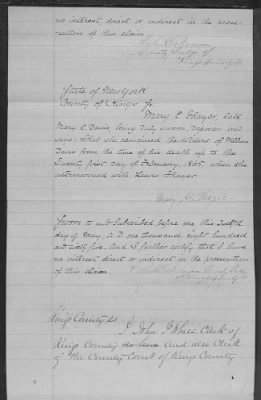 no interest, direct or indirect in the prose-
cution of this claim.
County Judge of
Kings County
State of New York
County of Kings ss.
Mary E. Thayer, late
Mary E. Davis, being duly sworn, deposes and
says: That she remained the Widow of William
Davis from the time of his death up to the
Twenty first day of February, 1865, when she
intermarried with Lewis Thayer.
Mary E. Thayer
Sworn to and subscribed before me this Twelfth
day of May, A.D. one thousand eight hundred
and sixty five. And I further certify that I have
no interest direct or indirect in the prosecution
of this claim.
Kings County ss
I John J White Clerk of
Kings County do hers and also Clerk
of the County Court of Kings County